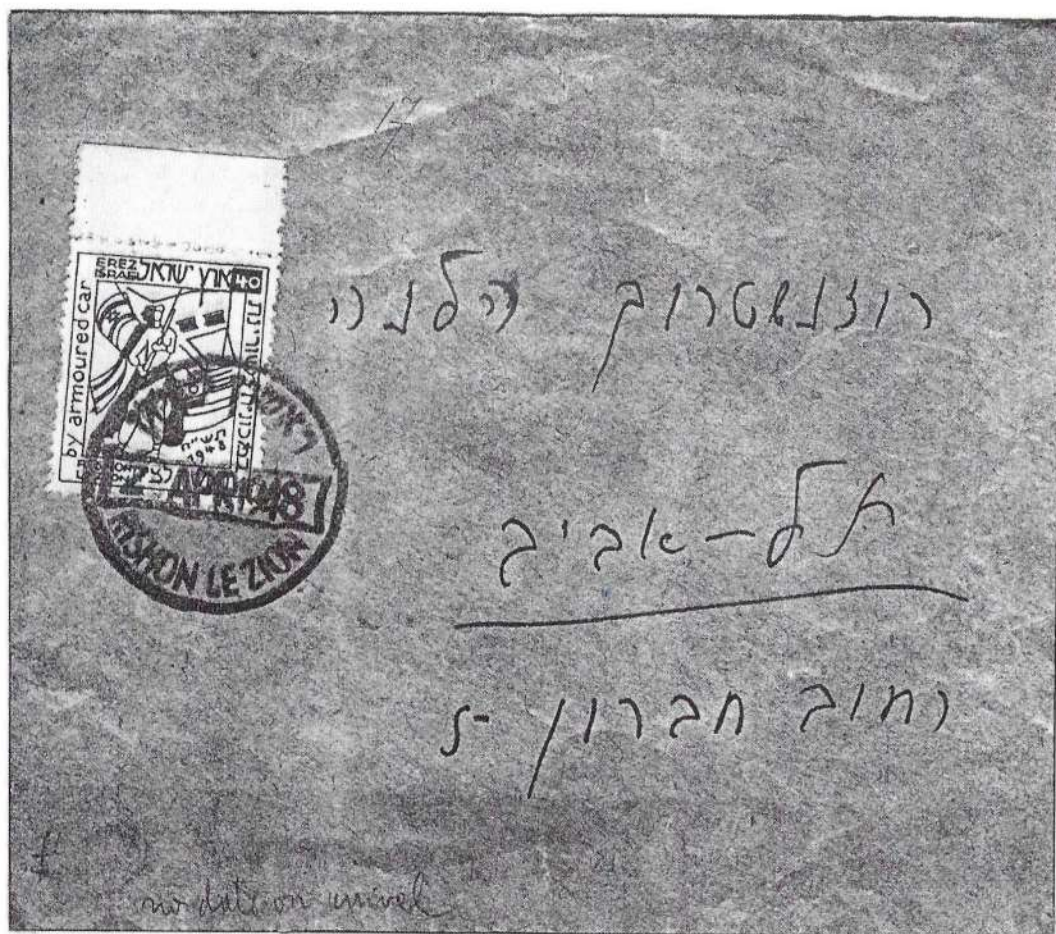 17
EREZ
ISRAEL ארץ ישראל 40
by armoured car
תש״ח
1948
APR 1948
RISHON LE ZION
רוזנשטרוך הלנה
תל-אביב
רחוב חברון
no date on arrival